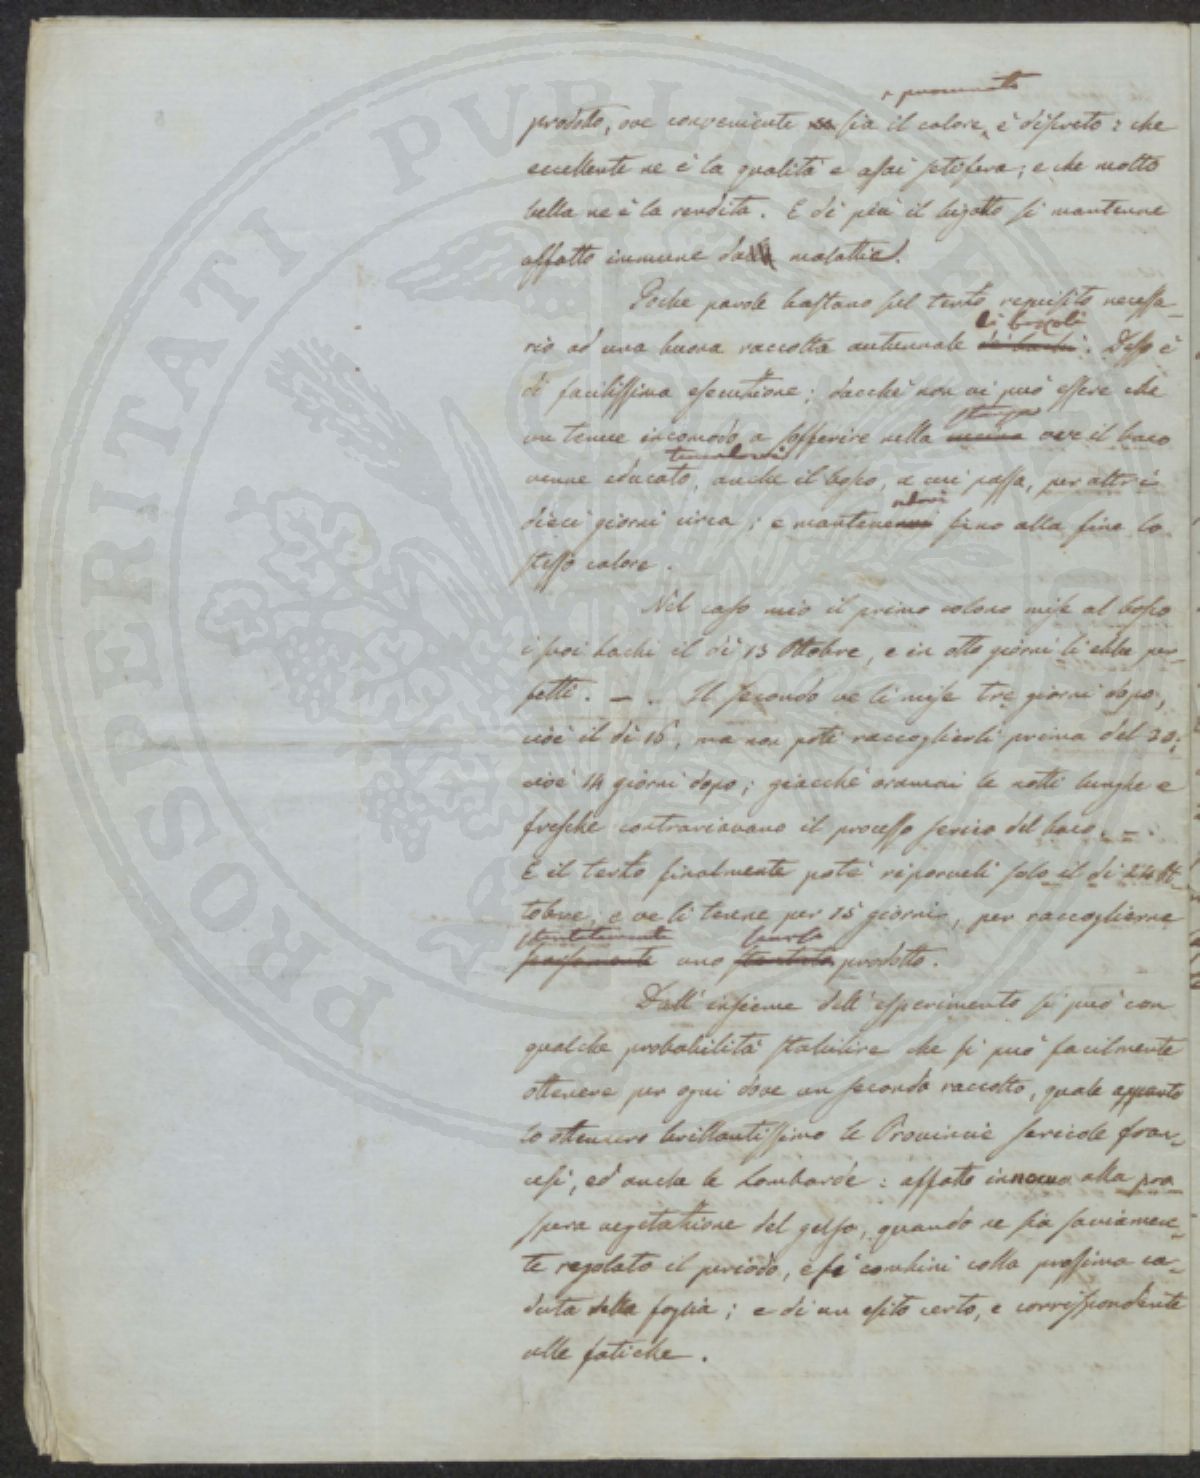 e procurato
prodotto, ove conveniente ne sia il calore, è discreto: che
eccellente ne è la qualità e assai setifera; e che molto
bella ne è la rendita. E di più il bigatto si mantenne
affatto immune da malattie.
Poche parole bastano sul terzo requisito necessa-
di bozzoli
rio ad una buona raccolta autunnale dei bachi. Desso è
di facilissima esecuzione; dacchè non vi può essere che
un tenue incomodo a sofferire nella cucina ove il baco
venne educato, anche il bosco, a cui passa, per altri
dieci giorni circa; e mantenervi fino alla fine lo
stesso calore.
Nel caso mio il primo colono mise al bosco
i suoi bachi il dì 13 Ottobre, e in otto giorni li ebbe per-
fetti. — . Il secondo ve li mise tre giorni dopo,
cioè il dì 16, ma non potè raccoglierli prima del 30,
cioè 14 giorni dopo; giacchè oramai le notti lunghe e
fresche contrariavano il processo serico del baco. —
E il terzo finalmente potè riporveli solo il dì 24 Ot-
tobre, e ve li tenne per 15 giorni, per raccoglierne
stentatamente scarso
scarsamente uno stentato prodotto.
Dall' insieme dell' esperimento si può con
qualche probabilità stabilire che si può facilmente
ottenere per ogni dove un secondo raccolto, quale appunto
lo ottennero brillantissimo le Provincie sericole fran-
cesi, ed anche le Lombarde: affatto innocuo alla pro-
spera vegetazione del gelso, quando ne sia saviamen-
te regolato il periodo, e si combini colla prossima ca-
duta della foglia; e di un esito certo, e corrispondente
alle fatiche.
PROSPERITATI PUBLICAE